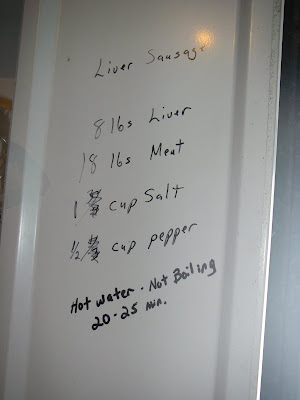 Liver Sausage
8 lbs Liver
18 lbs Meat
1 cup Salt
1/2 cup pepper
Hot water - Not Boiling
20-25 min.